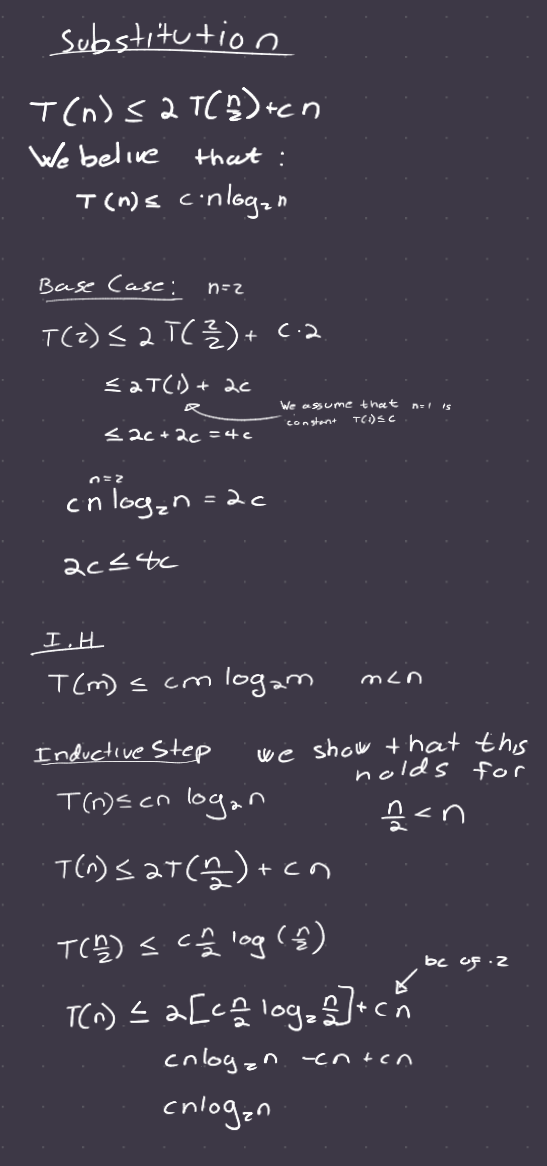 Substitution
T(n) ≤ 2 T(n/2) + cn
We belive that :
T(n) ≤ c·nlog₂n
Base Case: n=2
T(2) ≤ 2 T(2/2) + c·2
≤ 2T(1) + 2c
We assume that n=1 is
constant T(1)≤c
≤ 2c + 2c = 4c
n=2
cn log₂n = 2c
2c ≤ 4c
I.H
T(m) ≤ cm log₂m m<n
Inductive Step we show that this
holds for
T(n) ≤ cn log₂n n/2 < n
T(n) ≤ 2T(n/2) + cn
T(n/2) ≤ c n/2 log (n/2)
bc of ·2
T(n) ≤ 2[c n/2 log₂ n/2] + cn
cnlog₂n -cn + cn
cnlog₂n